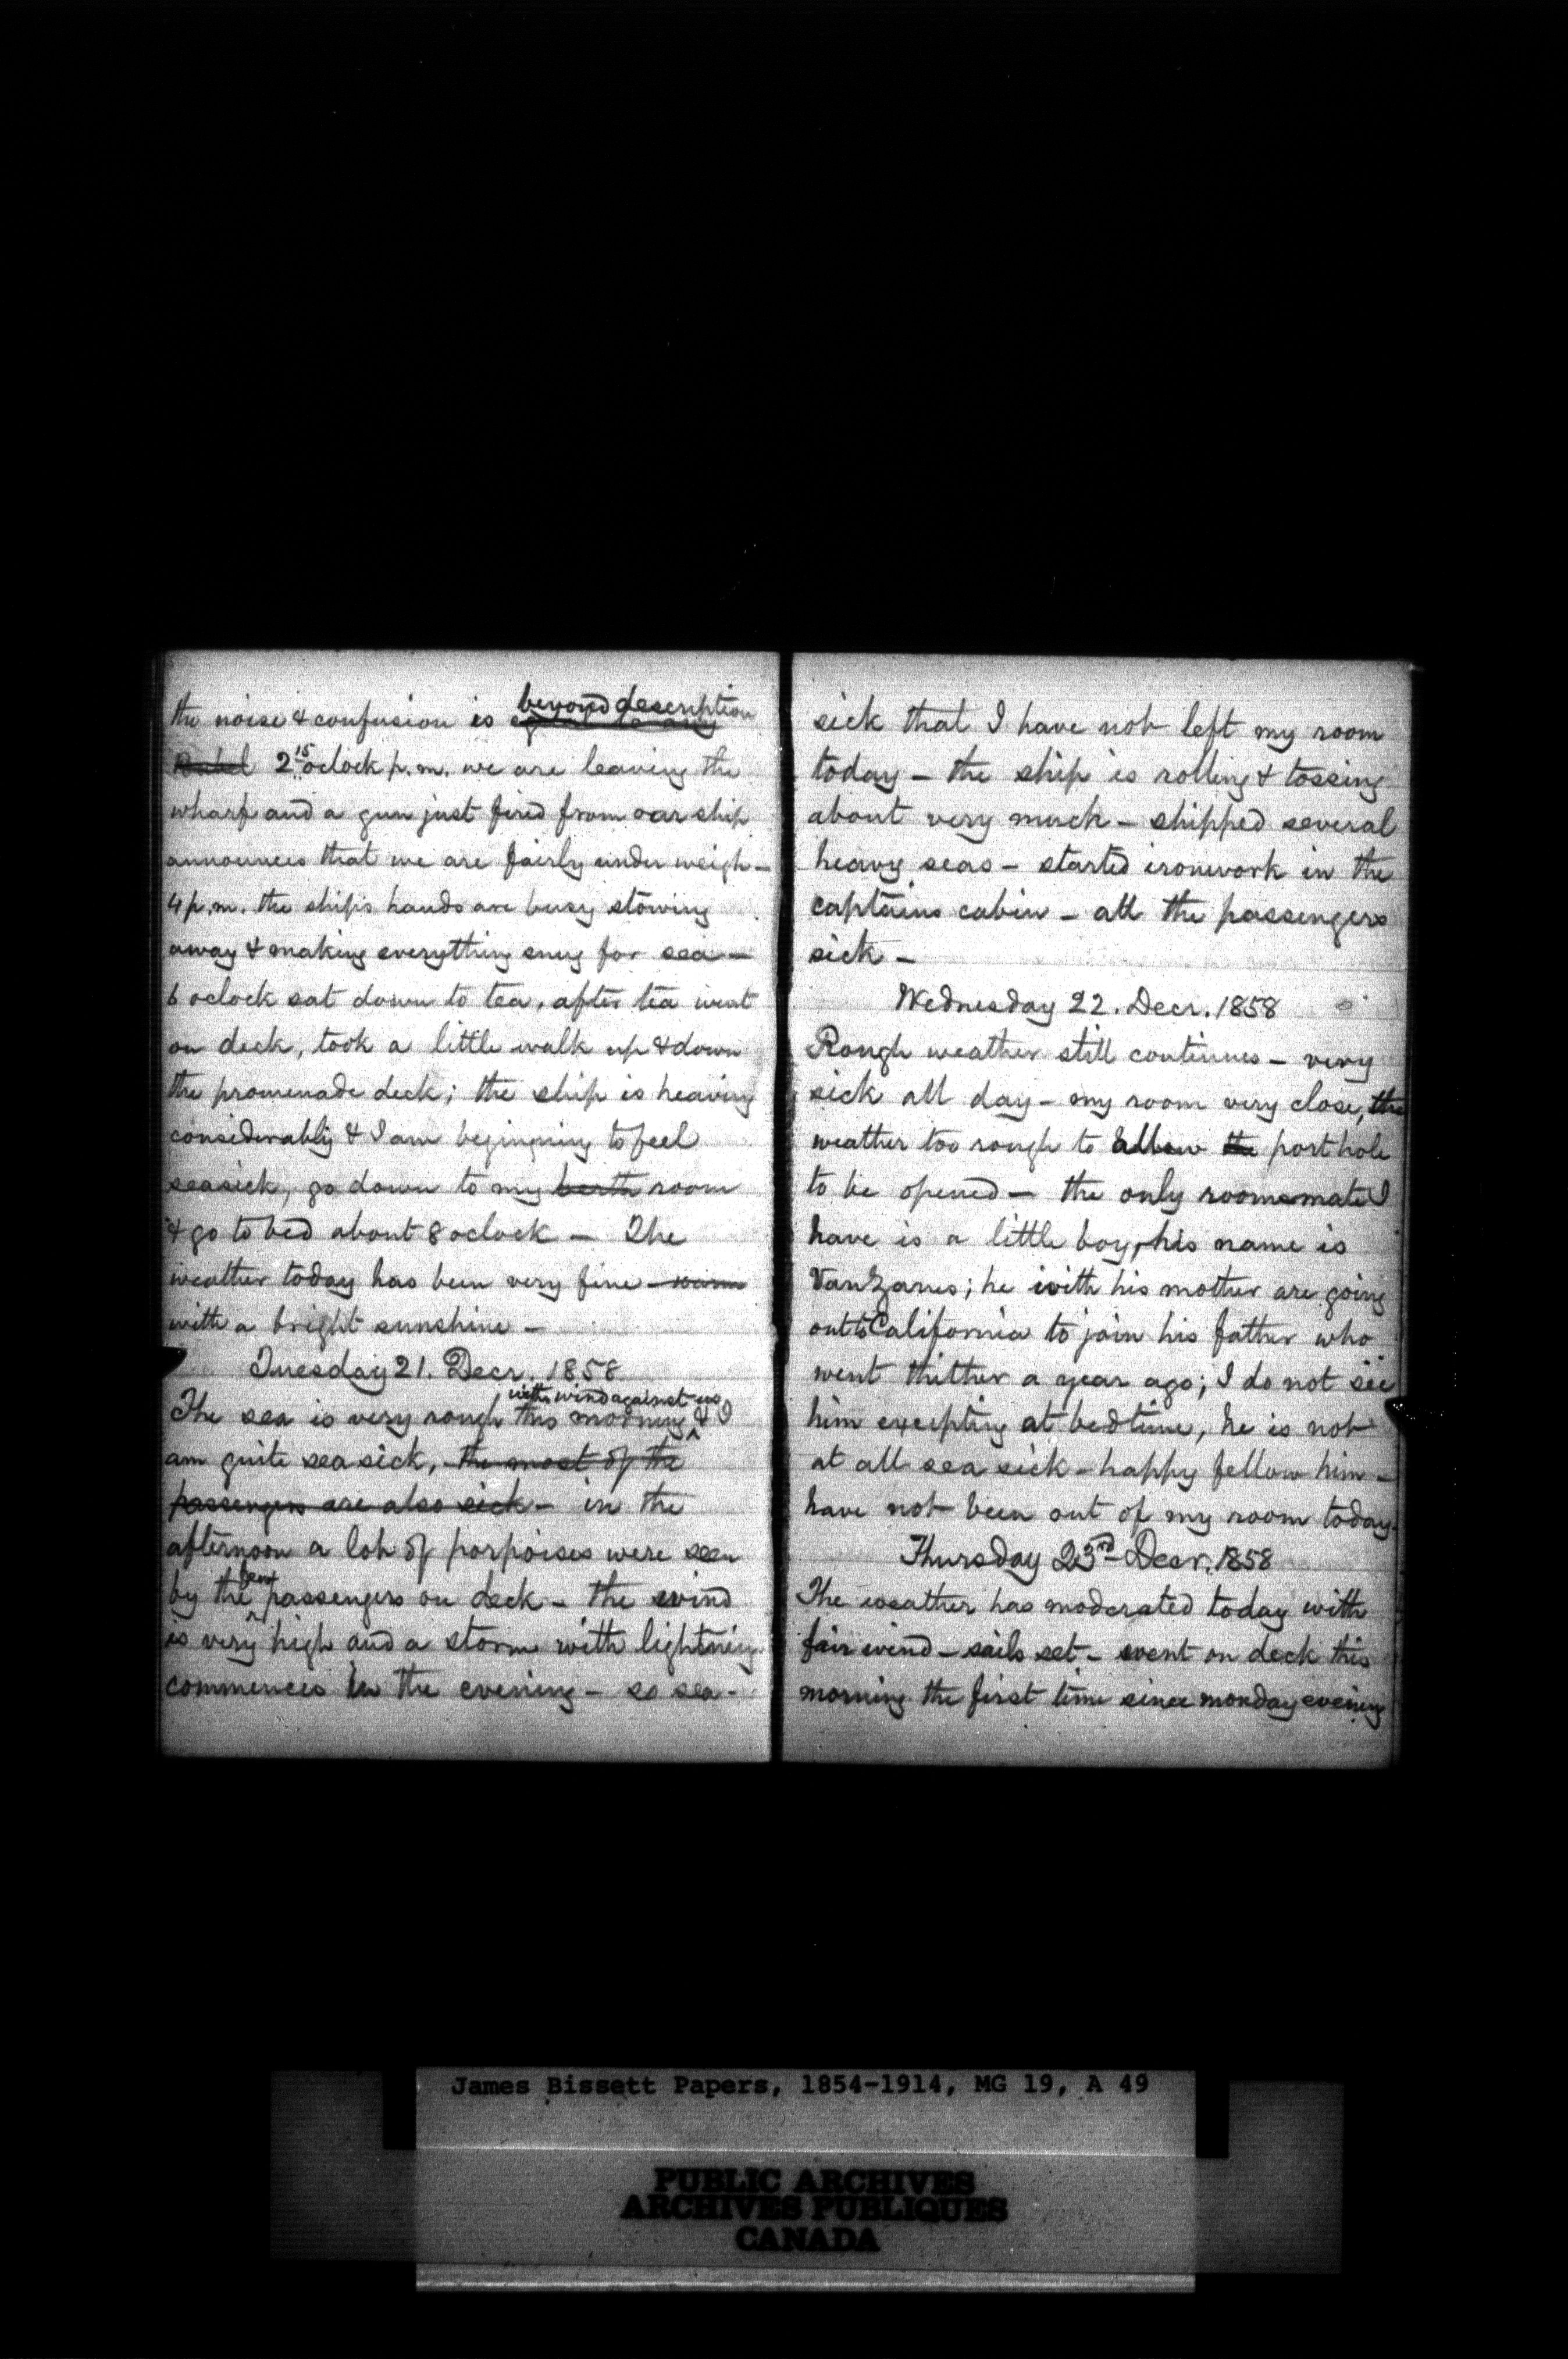 the noise & confusion is equal to any beyond description
Babel 2 15 oclock p.m. we are leaving the
wharf and a gun just fired from our ship
announces that we are fairly under weigh -
4 p.m. the ships hands are busy stowing
away & making everything snug for sea -
6 oclock sat down to tea, after tea went
on deck, took a little walk up & down
the promenade deck; the ship is heaving
considerably & I am beginning to feel
seasick, go down to my berth room
& go to bed about 8 oclock - The
weather today has been very fine - warm
with a bright sunshine -
Tuesday 21. Decr. 1858
with wind against us
The sea is very rough this morning & I
am quite sea sick, the most of the
passengers are also sick - in the
afternoon a lot of porpoises were seen
by the few passengers on deck - the wind
is very high and a storm with lightning
commences in the evening - so sea-
sick that I have not left my room
today - the ship is rolling & tossing
about very much - shipped several
heavy seas - started ironwork in the
captains cabin - all the passengers
sick -
Wednesday 22. Decr. 1858
Rough weather still continues - very
sick all day - my room very close, the
weather too rough to allow the port hole
to be opened - the only roommate I
have is a little boy, his name is
VanZanes; he with his mother are going
out to California to join his father who
went thither a year ago; I do not see
him excepting at bedtime, he is not
at all sea sick - happy fellow him -
have not been out of my room today.
Thursday 23rd Decr. 1858
The weather has moderated today with
fair wind - sails set - went on deck this
morning the first time since monday evening
James Bissett Papers, 1854-1914, MG 19, A 49
PUBLIC ARCHIVES
ARCHIVES PUBLIQUES
CANADA